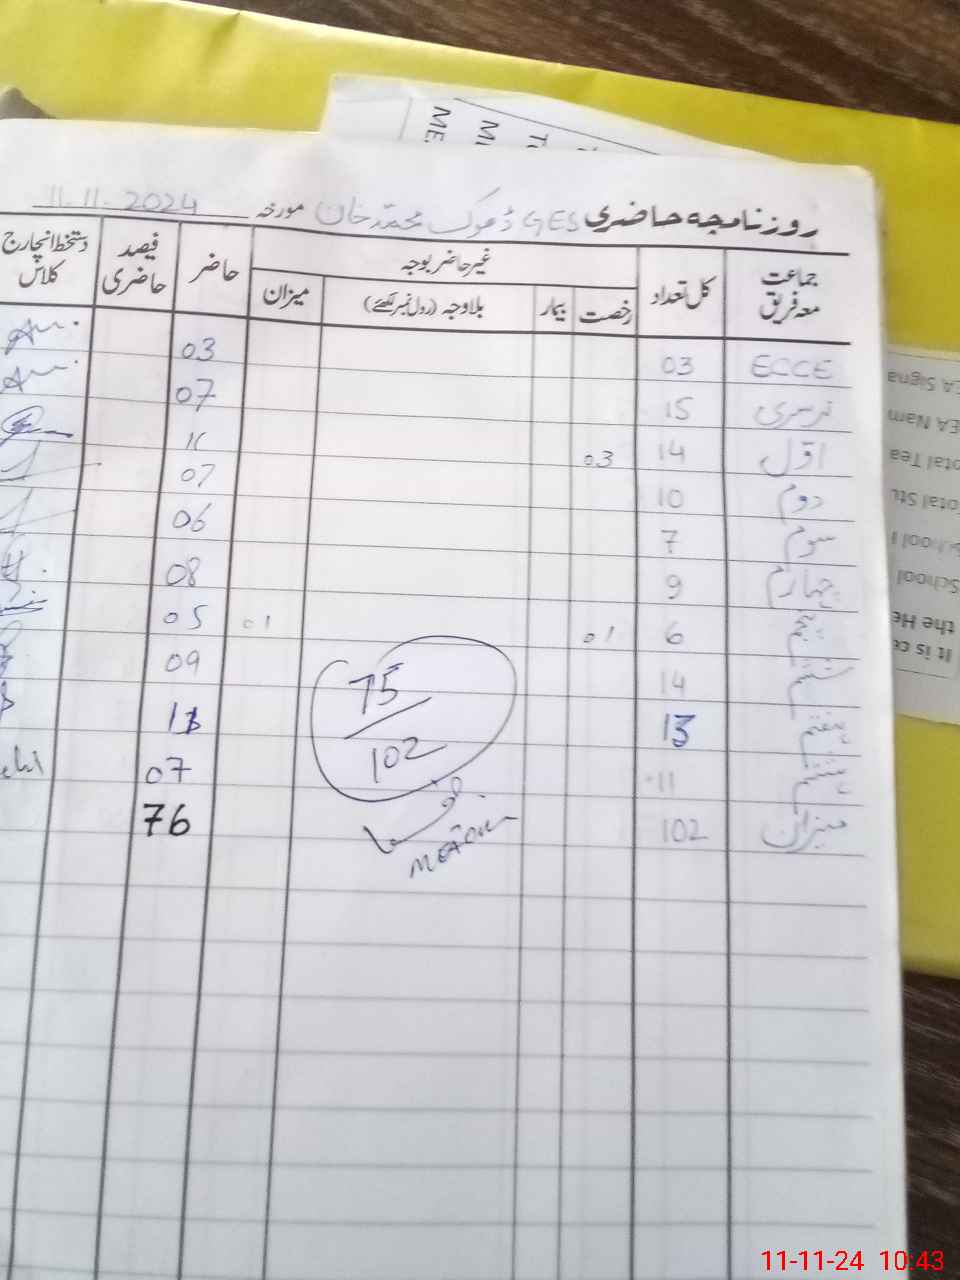 ME
MI
To
روزنامچہ حاضری GES ڈھوک محمد خان مورخہ 11.11.2024
جماعت معہ فریق کل تعداد غیر حاضر بوجہ حاضر فیصد حاضری دستخط انچارج کلاس
رخصت بیمار بلاوجہ (رول نمبر لکھئے) میزان
ECCE 03 03
نرسری 15 07
اول 14 03 11
دوم 10 07
سوم 7 06
چہارم 9 08
پنجم 6 01 01 05
ششم 14 09
ہفتم 13
ہشتم 11 07
میزان 102 76
75
102
EA Signa
EA Nam
otal Tea
otal Stu
School
School
the He
It is ce
11-11-24 10:43